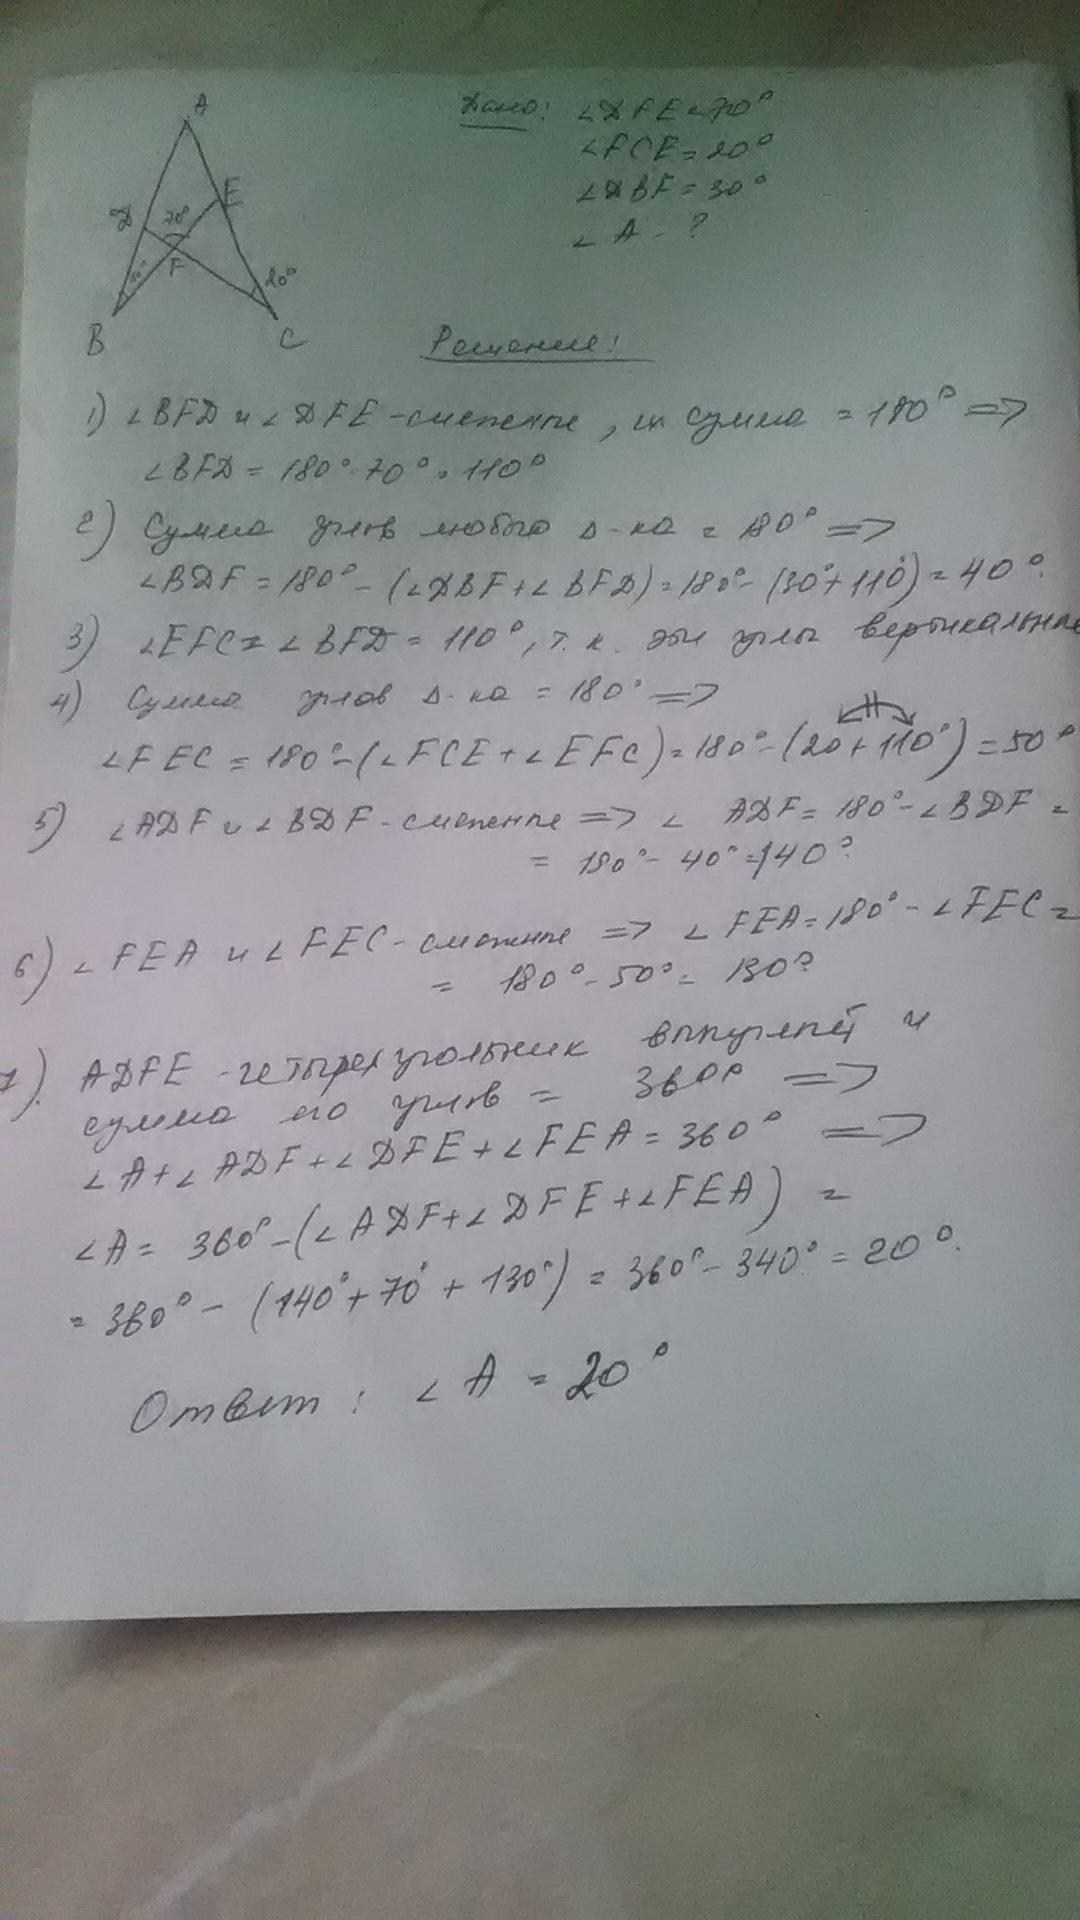 A
Дано: ∠DFE = 70°
∠FCE = 20°
∠DBF = 30°
∠A - ?
E
D
70°
F
30°
20°
B
C
Решение:
1) ∠BFD и ∠DFE - смежные, их сумма = 180° =>
∠BFD = 180° - 70° = 110°
2) Сумма углов любого Δ-ка = 180° =>
∠BDF = 180° - (∠DBF + ∠BFD) = 180° - (30° + 110°) = 40°.
3) ∠EFC = ∠BFD = 110°, т.к. эти углы вертикальные
4) Сумма углов Δ-ка = 180° =>
∠FEC = 180° - (∠FCE + ∠EFC) = 180° - (20 + 110°) = 50°
5) ∠ADF и ∠BDF - смежные => ∠ ADF = 180° - ∠BDF =
= 180° - 40° = 140°.
6) ∠FEA и ∠FEC - смежные => ∠FEA = 180° - ∠FEC =
= 180° - 50° = 130°.
7). ADFE - четырехугольник выпуклый и
сумма его углов = 360° =>
∠A + ∠ADF + ∠DFE + ∠FEA = 360° =>
∠A = 360° - (∠ADF + ∠DFE + ∠FEA) =
= 360° - (140° + 70° + 130°) = 360° - 340° = 20°.
Ответ: ∠A = 20°